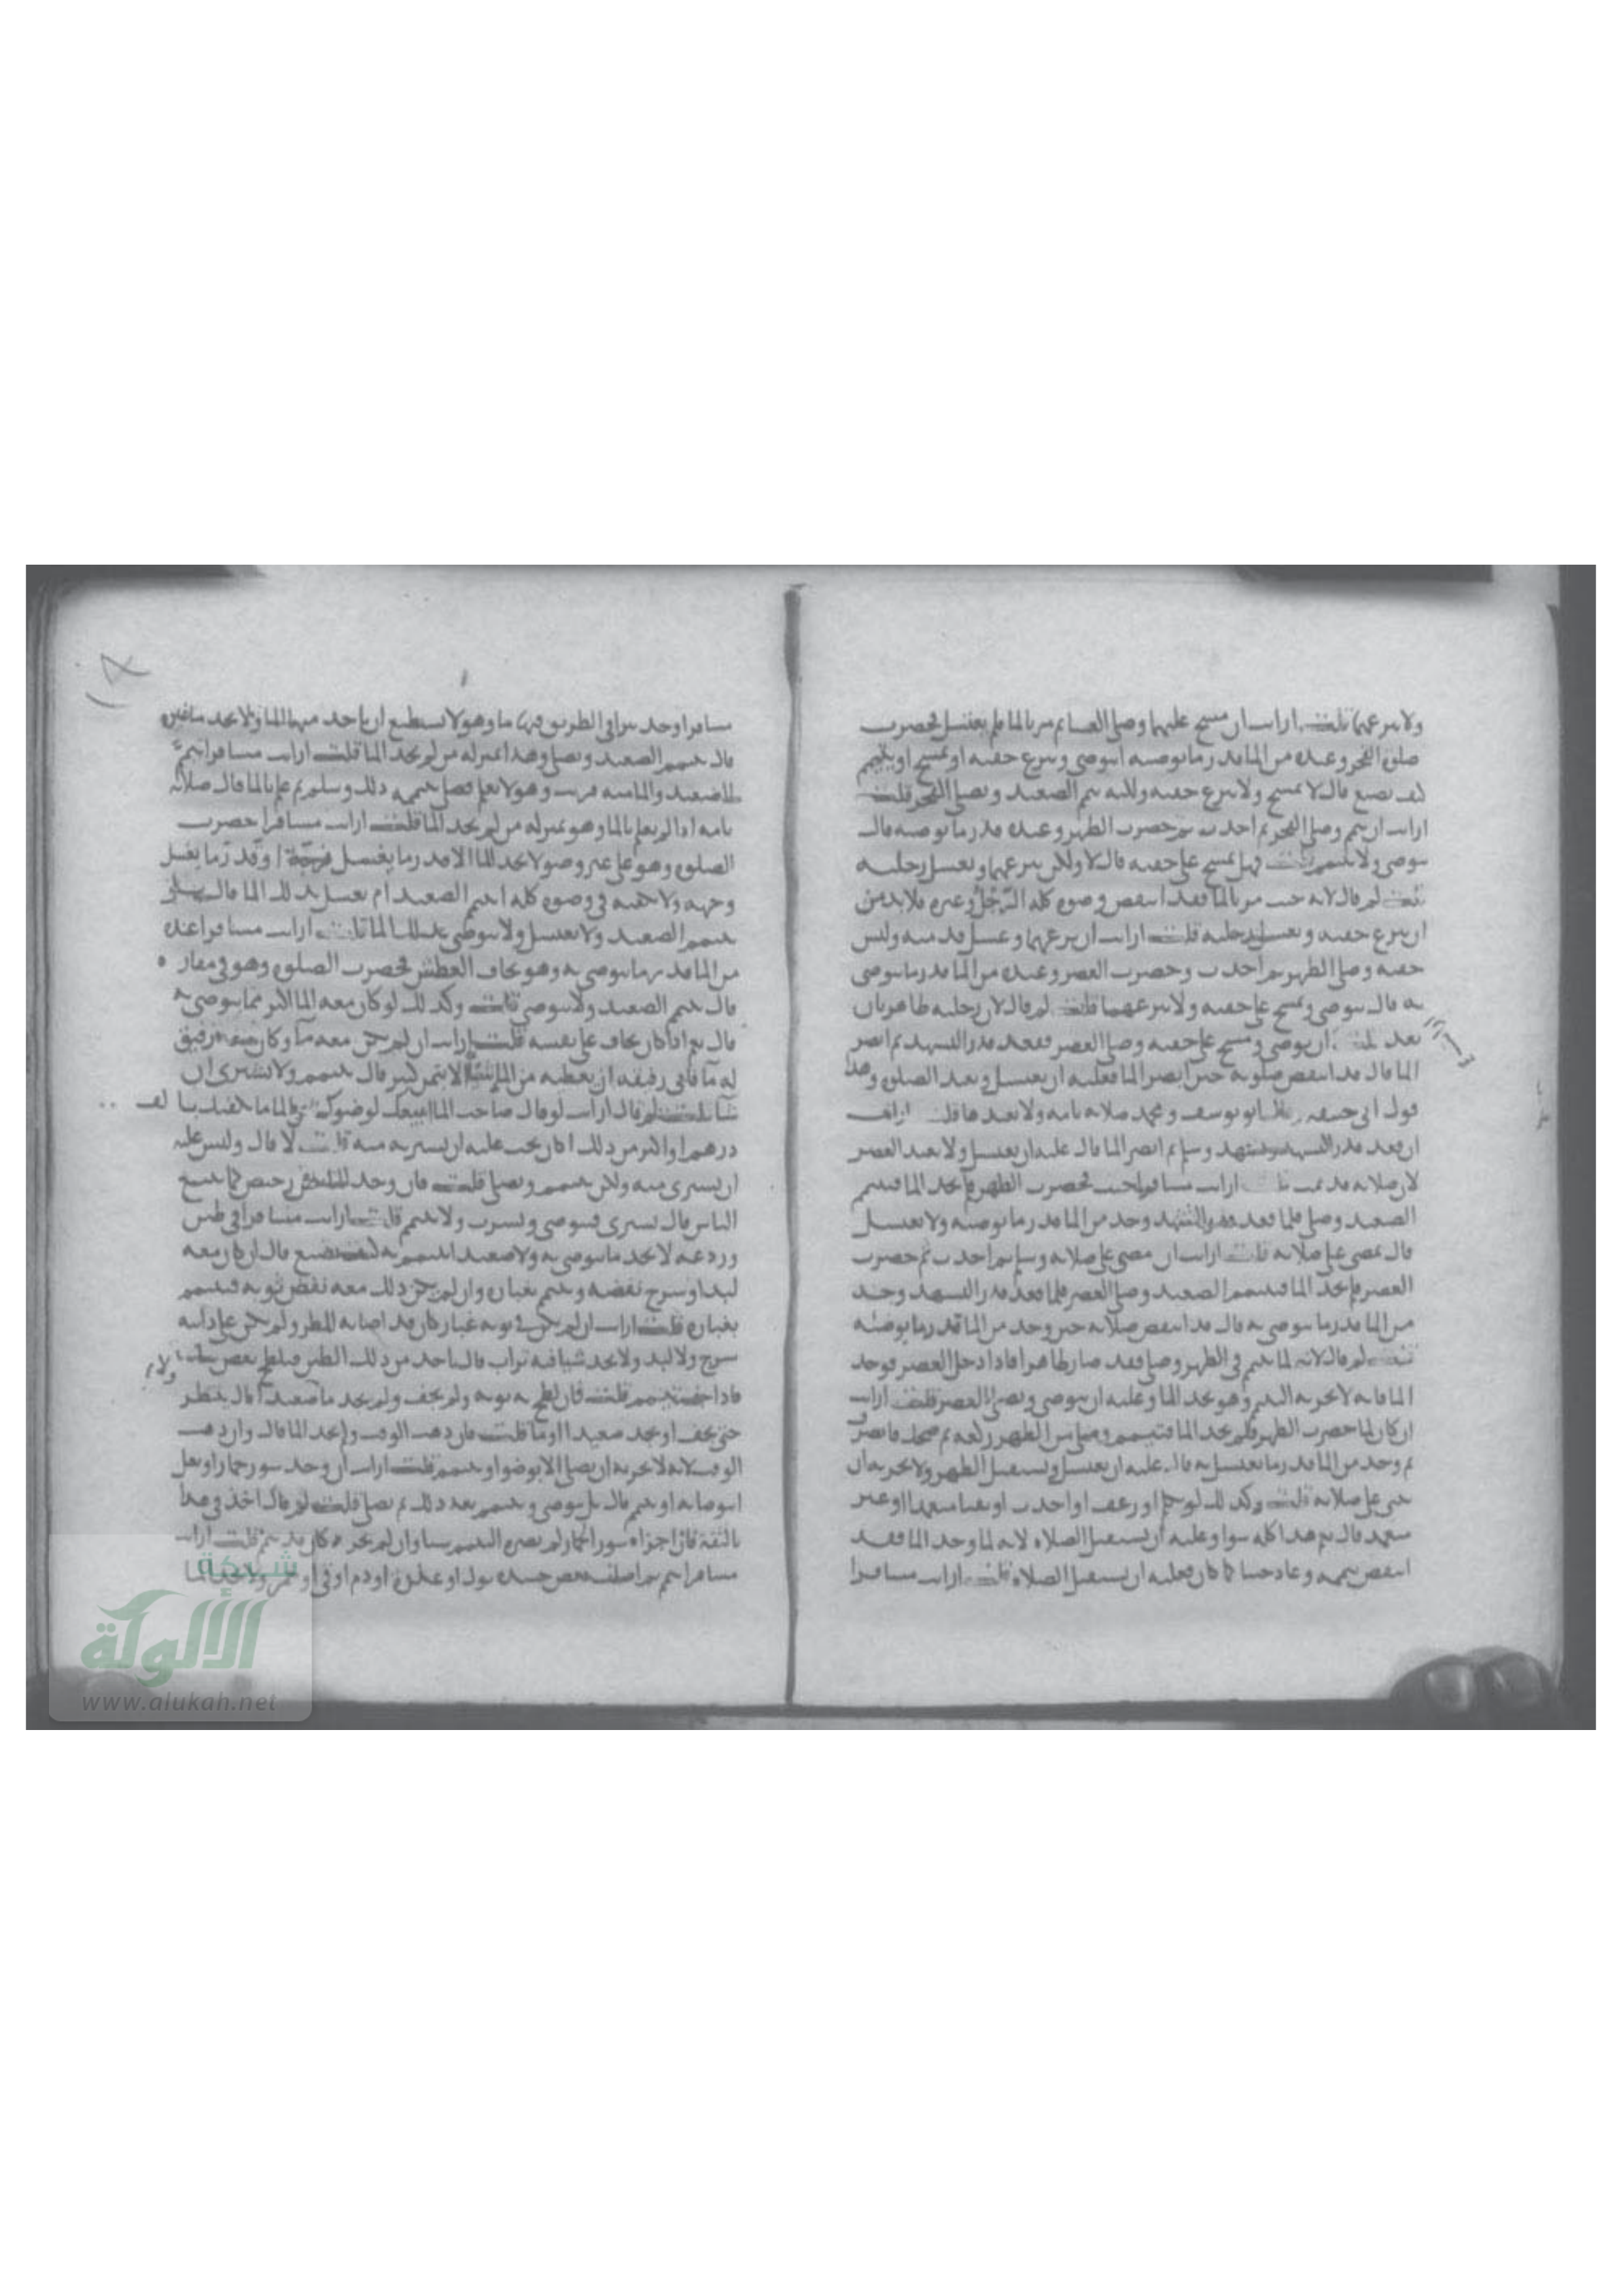 ولا ينزعهما قلت ارايت ان مسح عليهما وصلى العشا ثم مر بالما فلم يغتسل فحضرت
صلوة الفجر وعنده من الما قدر ما يوضيه ايتوضى وينزع خفيه او يمسح او يتيمم
كيف يصنع قال لا يمسح ولا ينزع خفيه ولكنه يتيمم الصعيد ويصلي الفجر قلت
ارايت ان تيمم وصلى الفجر ثم احدث ثم حضرت الظهر وعنده قدر ما يوضيه قال
يتوضى ولا يتيمم قلت فهل يمسح على خفيه قال لا ولكن ينزعهما ويغسل رجليه
قلت لم قال لانه حيث مر بالما فقد انتقض وضوه كله الرجل وغيره فلا بد من
ان ينزع خفيه ويغسل رجليه قلت ارايت ان نزعهما وغسل قدميه ولبس
خفيه وصلى الظهر ثم احدث وحضرت العصر وعنده من الما قدر ما يتوضى
به قال يتوضى ويمسح على خفيه ولا ينزعهما قلت لم قال لان رجليه طاهرتان
بعد قلت ان توضى ومسح على خفيه وصلى العصر فقعد قدر التشهد ثم ابصر
الما قال قد انتقض صلوته حين ابصر الما فعليه ان يغتسل ويعيد الصلوة وهذا
قول ابي حنيفة وقال ابو يوسف ومحمد صلاته تامة ولا يعيدها قلت ارايت
ان قعد قدر التشهد وتشهد وسلم ثم ابصر الما قال عليه ان يغتسل ولا يعيد العصر
لان صلاته قد تمت قلت ارايت مسافرا اجنب فحضرت الظهر فلم يجد الما فتيمم
الصعيد وصلى فلما قعد قدر التشهد وجد من الما قدر ما يوضيه ولا يغسله
قال يمضي على صلاته قلت ارايت ان مضى على صلاته وسلم ثم احدث ثم حضرت
العصر فلم يجد الما فتيمم الصعيد وصلى العصر فلما قعد قدر التشهد وجد
من الما قدر ما يتوضى به قال قد انتقض صلاته حين وجد من الما قدر ما يوضئه
قلت لم قال لانه لما تيمم في الظهر وصلى فقد صار طاهرا فاذا دخل العصر فوجد
الما فانه لا يجزيه التيمم وهو يجد الما وعليه ان يتوضى ويصلي العصر قلت ارايت
ان كان لما حضرت الظهر فلم يجد الما فتيمم وصلى من الظهر ركعة ثم ضحك فانصرف
ثم وجد من الما قدر ما يغتسل به قال عليه ان يغتسل ويستقبل الظهر ولا يجزيه ان
يبني على صلاته قلت وكذلك لو تكلم او رعف او احدث او تقيا متعمدا او غير
متعمد قال نعم هذا كله سوا وعليه ان يستقبل الصلاه لانه لما وجد الما فقد
انتقض تيممه وعاد جنبا كما كان فعليه ان يستقبل الصلاه قلت ارايت مسافرا
مسافرا وجد بيرا في الطريق فيها ما وهو لا يستطيع ان ياخذ منها الما ولا يجد ما غيره
قال يتيمم الصعيد ويصلي وهذا بمنزلة من لم يجد الما قلت ارايت مسافرا تيمم
بالصعيد والما منه قريب وهو لا يعلم فصلى بتيممه ذلك وسلم ثم علم بالما قال صلاته
تامة اذا لم يعلم بالما وهو بمنزلة من لم يجد الما قلت ارايت مسافرا حضرت
الصلوة وهو على غير وضو لا يجد الما الا قدر ما يغسل فرجه او قدر ما يغسل
وجهه ولا يكفيه في وضوه كله ايتيمم الصعيد ام يغسل بذلك الما قال بل
يتيمم الصعيد ولا يغتسل ولا يتوضى بذلك الما قلت ارايت مسافرا عنده
من الما قدر ما يتوضى به وهو يخاف العطش فحضرت الصلوة وهو في مفازة
قال يتيمم الصعيد ولا يتوضى قلت وكذلك لو كان معه الما اكثر مما يتوضى به
قال نعم اذا كان يخاف على نفسه قلت ارايت ان لم يكن معه ما وكان مع رفيق
له ما فابى رفيقه ان يعطيه من الما شيئا الا بثمن كثير قال يتيمم ولا يشتري ان
شا قلت لم قال ارايت لو قال صاحب الما ابيعك لوضوك من الما ما يكفيك بالف
درهم او اكثر من ذلك اكان يجب عليه ان يشتريه منه قلت لا قال وليس عليه
ان يشتري منه ولكن يتيمم ويصلي قلت فان وجد الما بثمن رخيص كما يبيع
الناس قال يشتري فيتوضى ويشرب ولا يتيمم قلت ارايت مسافرا في طين
وردغة لا يجد ما يتوضى به ولا صعيدا يتيمم به كيف يصنع قال ان كان معه
لبدا وسرج نفضه وتيمم بغباره وان لم يكن ذلك معه نفض ثوبه فتيمم
بغباره قلت ارايت ان لم يكن في ثوبه غبار كان قد اصابه المطر ولم يكن على دابته
سرج ولا لبد ولا يجد شيا فيه تراب قال ياخذ من ذلك الطين فيلطخ بعض ثيابه
فاذا جف تيمم قلت فان لطخ به ثوبه ولم يجف ولم يجد ما صعيدا قال ينتظر
حتى يجف او يجد صعيدا او ما قلت فان ذهب الوقت ولم يجد الما قال وان ذهب
الوقت لانه لا يجزيه ان يصلي الا بوضوء او بتيمم قلت ارايت ان وجد سور حمار او بغل
ايتوضا به او يتيمم قال بل يتوضى ويتيمم بعد ذلك ثم يصلي قلت لم قال اخذ في هذا
بالثقة فان اجزاه سور الحمار لم يضره التيمم شيا وان لم يجزه كان قد تيمم قلت ارايت
مسافرا تيمم ثم اصاب بعض جسده بول او عذرة او دم او قي او خمر ولا يجد الما
شبكة
الألوكة
www.alukah.net